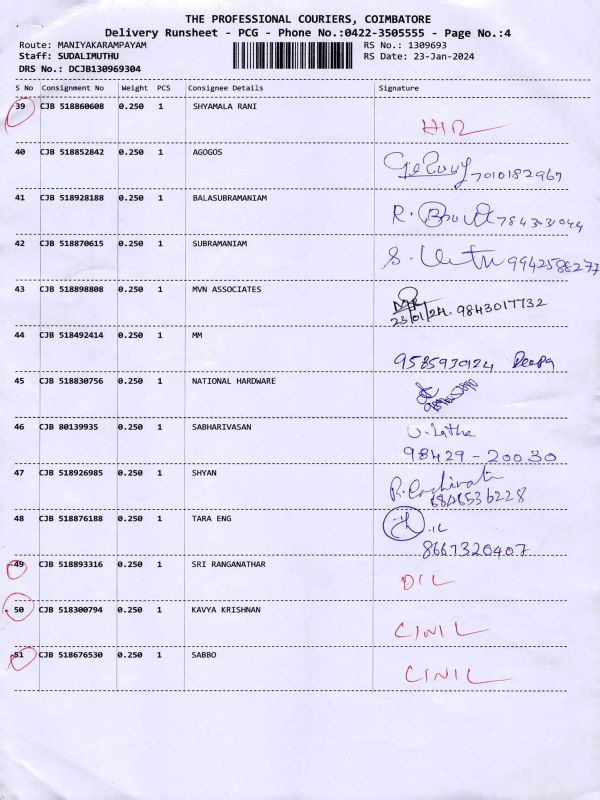 THE PROFESSIONAL COURIERS, COIMBATORE
Delivery Runsheet - PCG - Phone No.:0422-3505555 - Page No.:4
Route: MANIYAKARAMPAYAM RS No.: 1309693
Staff: SUDALIMUTHU RS Date: 23-Jan-2024
DRS No.: DCJB130969304
S No Consignment No Weight PCS Consignee Details Signature
39 CJB 518860608 0.250 1 SHYAMALA RANI
40 CJB 518852842 0.250 1 AGOGOS
7010182967
41 CJB 518928188 0.250 1 BALASUBRAMANIAM
R.
42 CJB 518870615 0.250 1 SUBRAMANIAM
S. 9942588277
43 CJB 518898808 0.250 1 MVN ASSOCIATES
23/01/24. 9843017732
44 CJB 518492414 0.250 1 MM
9585930124 Deepa
45 CJB 518830756 0.250 1 NATIONAL HARDWARE
46 CJB 80139935 0.250 1 SABHARIVASAN
U. Latha
98429-20030
47 CJB 518926985 0.250 1 SHYAN
R.
48 CJB 518876188 0.250 1 TARA ENG
8667320407
49 CJB 518893316 0.250 1 SRI RANGANATHAR
DIL
50 CJB 518300794 0.250 1 KAVYA KRISHNAN
CINIL
51 CJB 518676530 0.250 1 SABBO
CINIL